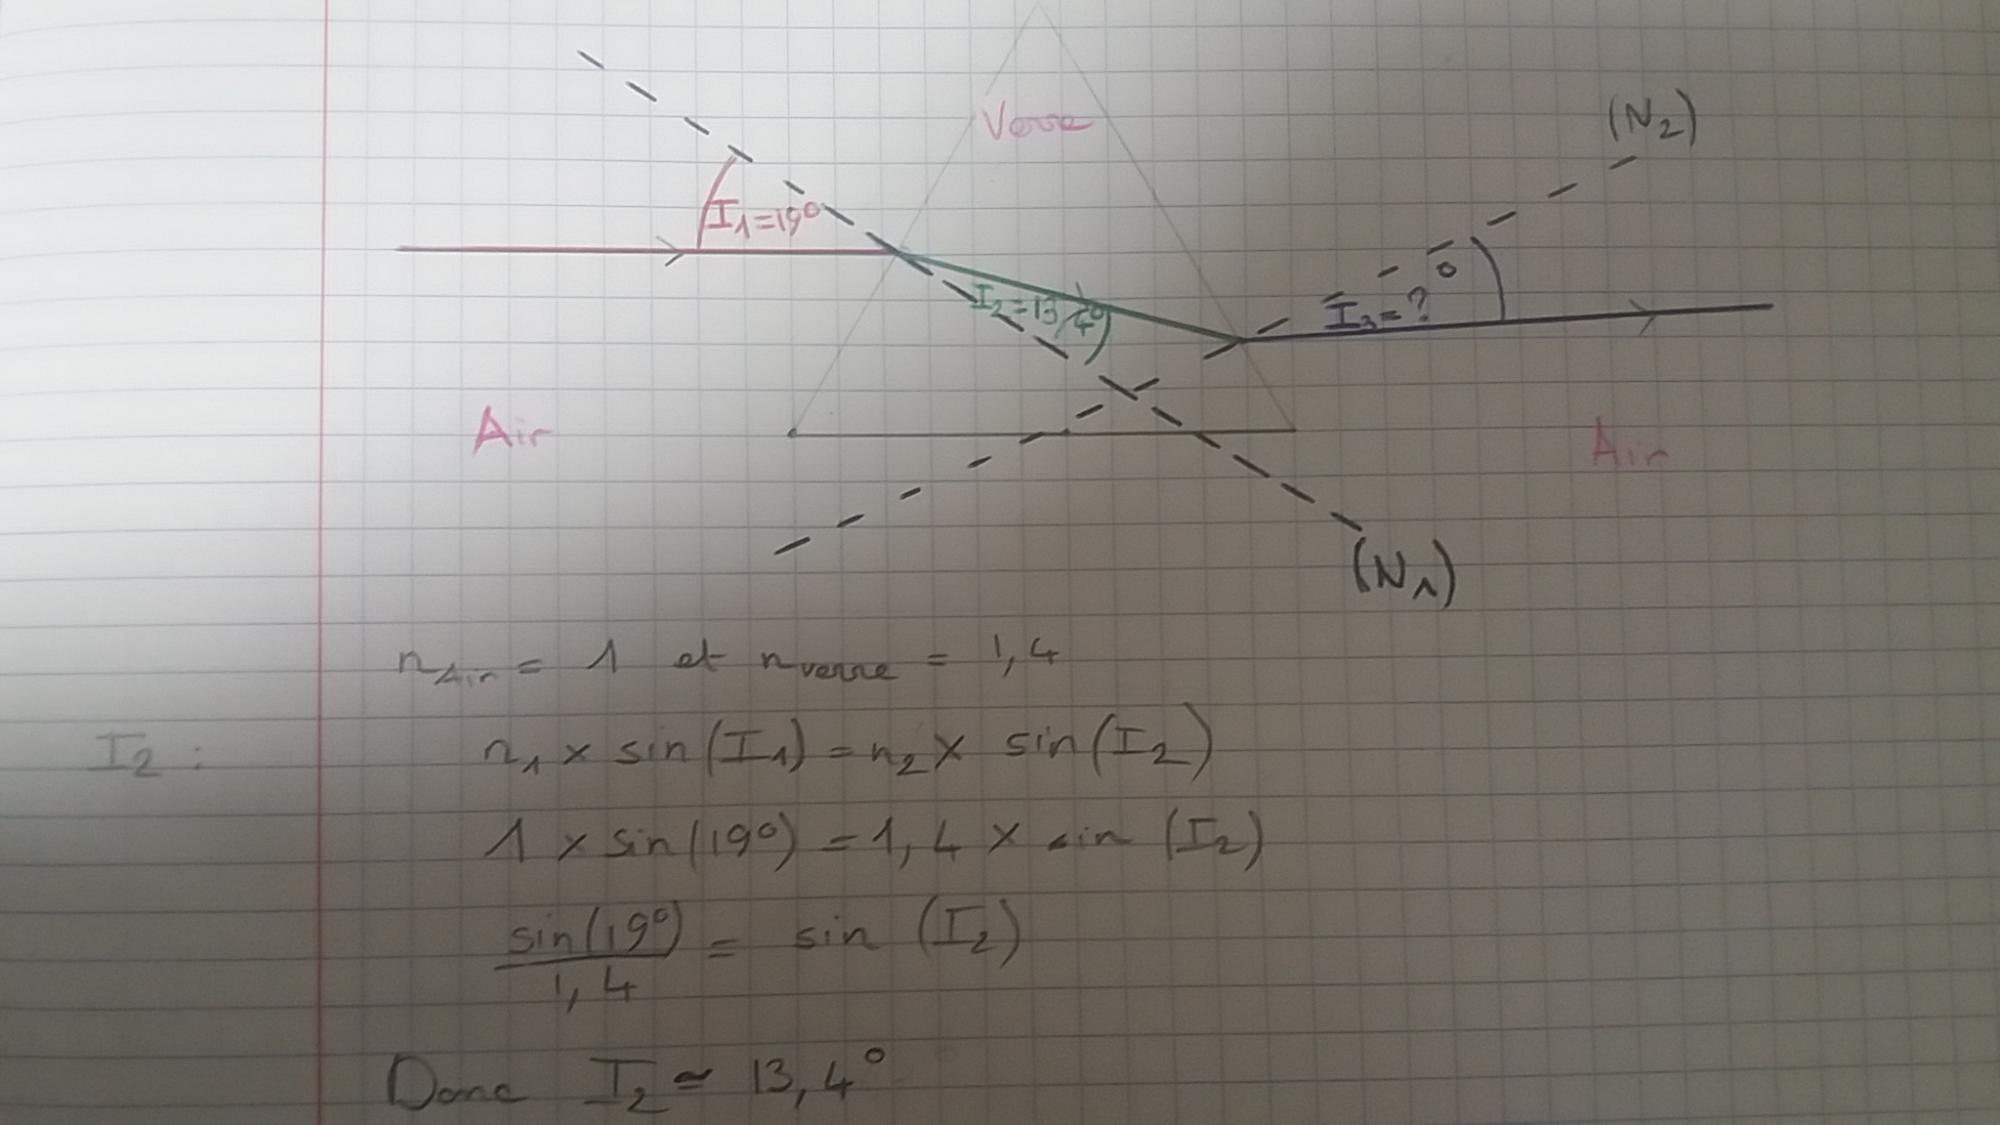 Verre
(N₂)
I₁=19°
I₂=13,4°
I₃=?°
Air
Air
(N₁)
n_Air = 1 et n_verre = 1,4
I₂ : n₁ × sin(I₁) = n₂ × sin(I₂)
1 × sin(19°) = 1,4 × sin (I₂)
sin(19°)/1,4 = sin (I₂)
Donc I₂ ≃ 13,4°